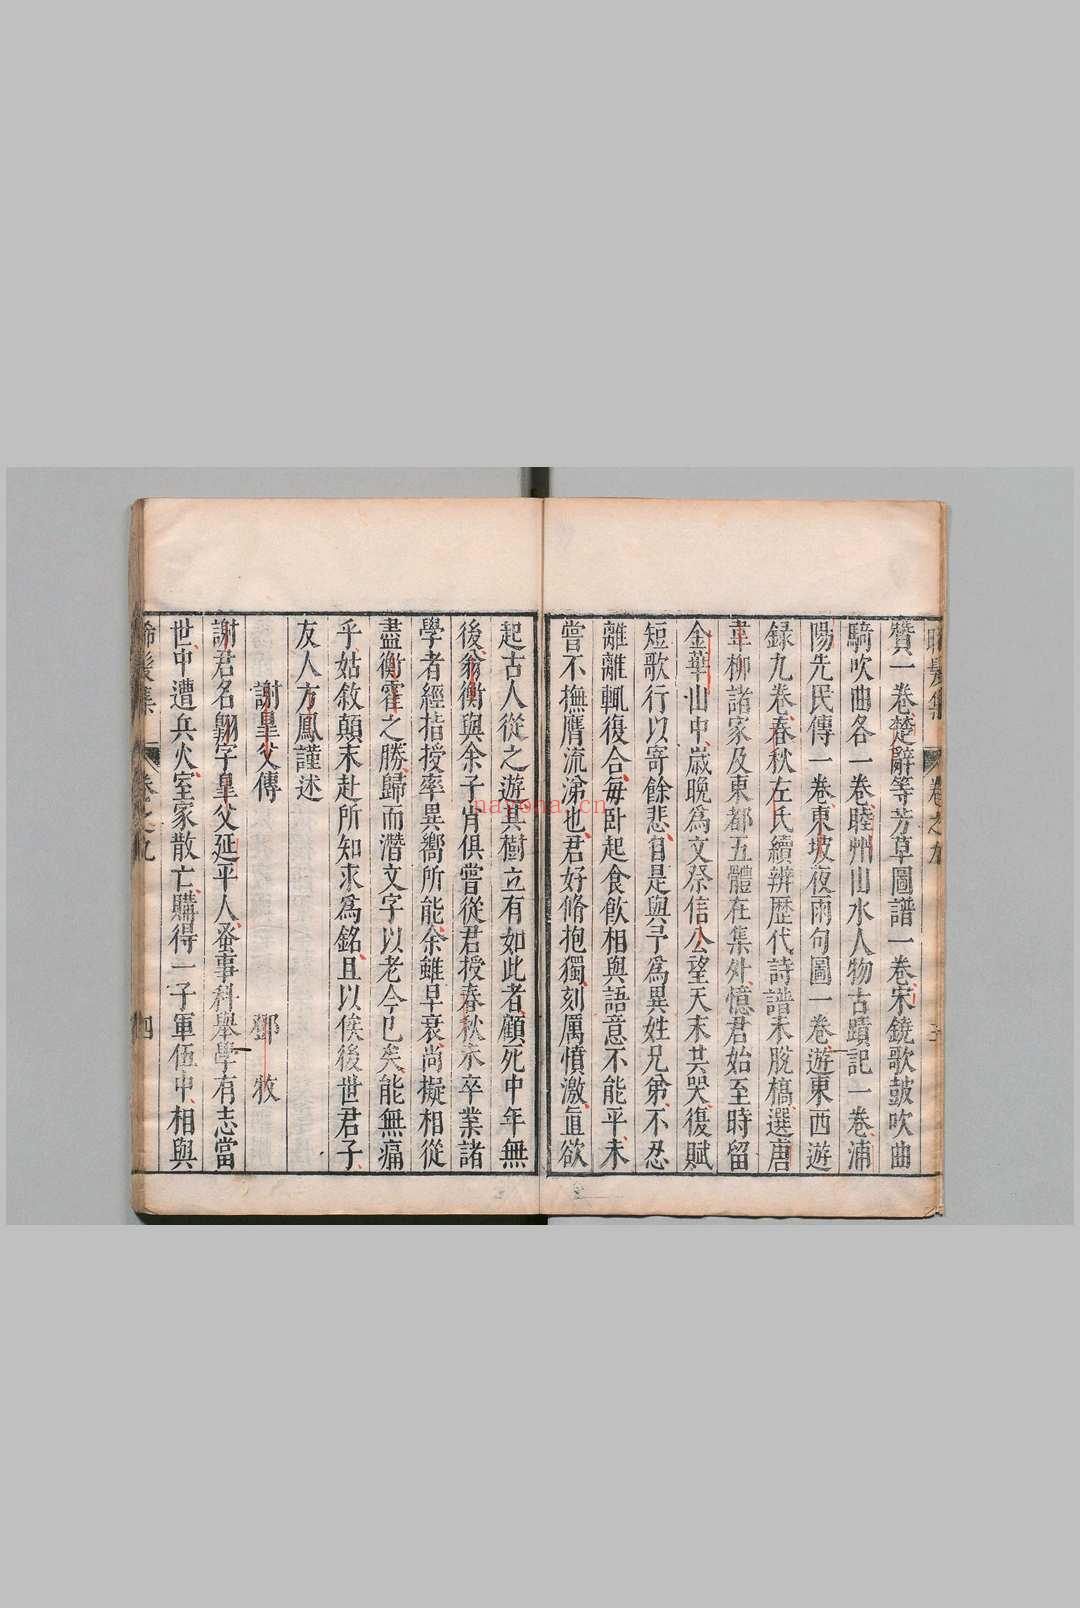 晞髮集 卷之九 三
贊一卷楚辭等芳草圖譜一卷宋鐃歌鼓吹曲
騎吹曲各一卷睦州山水人物古蹟記一卷浦
陽先民傳一卷東坡夜雨句圖一卷遊東西遊
録九卷春秋左氏續辨歷代詩譜未脫槁選唐
韋柳諸家及東都五體在集外憶君始至時留
金華山中歲晚爲文祭信公望天末共哭復賦
短歌行以寄餘悲自是與予爲異姓兄弟不忍
離離輒復合每卧起食飲相與語意不能平未
嘗不撫膺流涕也君好脩抱獨刻厲憤激直欲
起古人從之遊其樹立有如此者顧死中年無
後翁衡與余子肖俱嘗從君授春秋未卒業諸
學者經指授率異嚮所能余雖早衰尚擬相從
盡衡霍之勝歸而潛文字以老今已矣能無痛
乎姑敘顛末赴所知求爲銘且以俟後世君子
友人方鳳謹述
謝皇父傳 鄧牧
謝君名翱字皋父延平人蚤事科舉學有志當
世中遭兵火室家散亡購得一子軍伍中相與
晞髮集 卷之九 四
nayona.cn